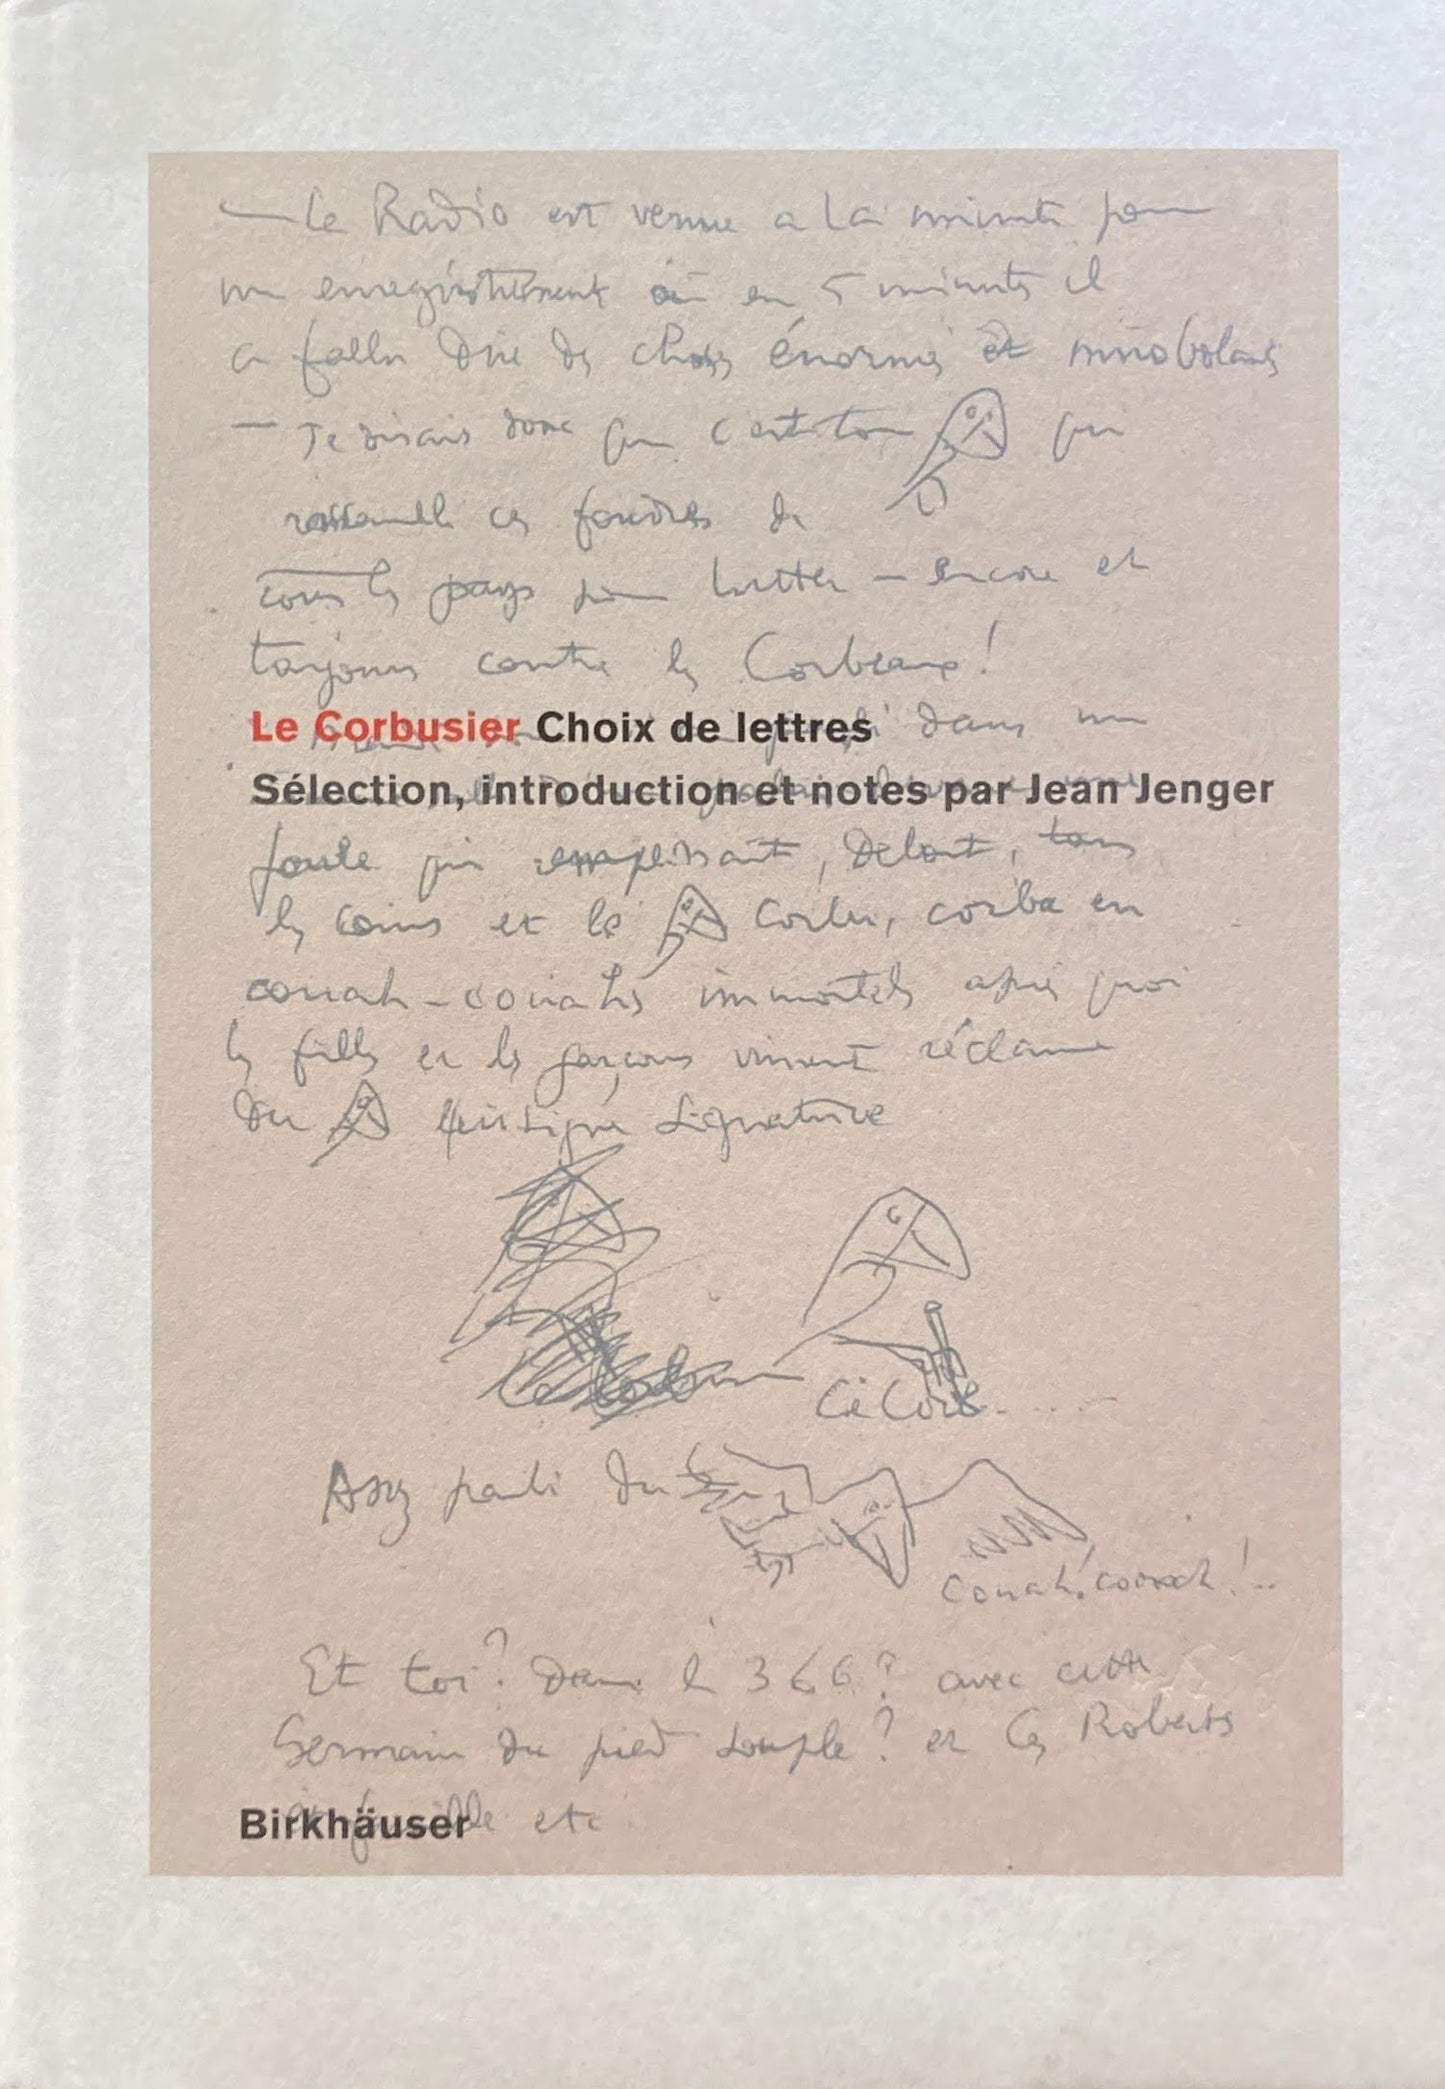 — Le Radio est venue a la minute pour
un enregistrement où en 5 minutes il
a fallu dire des choses énormes et mirobolants
— Je disais donc que c'est ton qui
rassemble ces foudres de
tous les pays pour lutter — encore et
toujours contre les Corbeaux!
dans un
Le Corbusier Choix de lettres
Sélection, introduction et notes par Jean Jenger
foule qui emplissait, debout, tous
les coins et le Corbu, corba en
couah-couahs immortels après quoi
les filles et les garçons vinrent réclamer
du signature
Le Corb....
Assez parlé du
Couah! couach!..
Et toi? Dans le 366? avec cette
Germain du pied souple? et les Roberts
etc
Birkhäuser